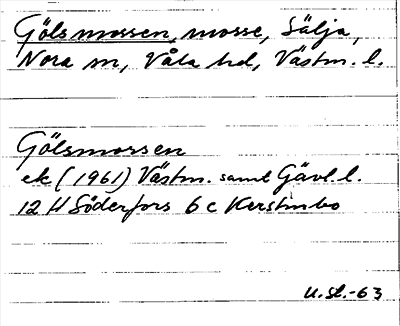 Gölsmossen, mosse, Sälja,
Nora sn, Våla hd, Västm. l.
Gölsmossen
ek (1961) Västm. samt Gävl. l.
12 H Söderfors 6 c Kerstinbo
U. St.-63